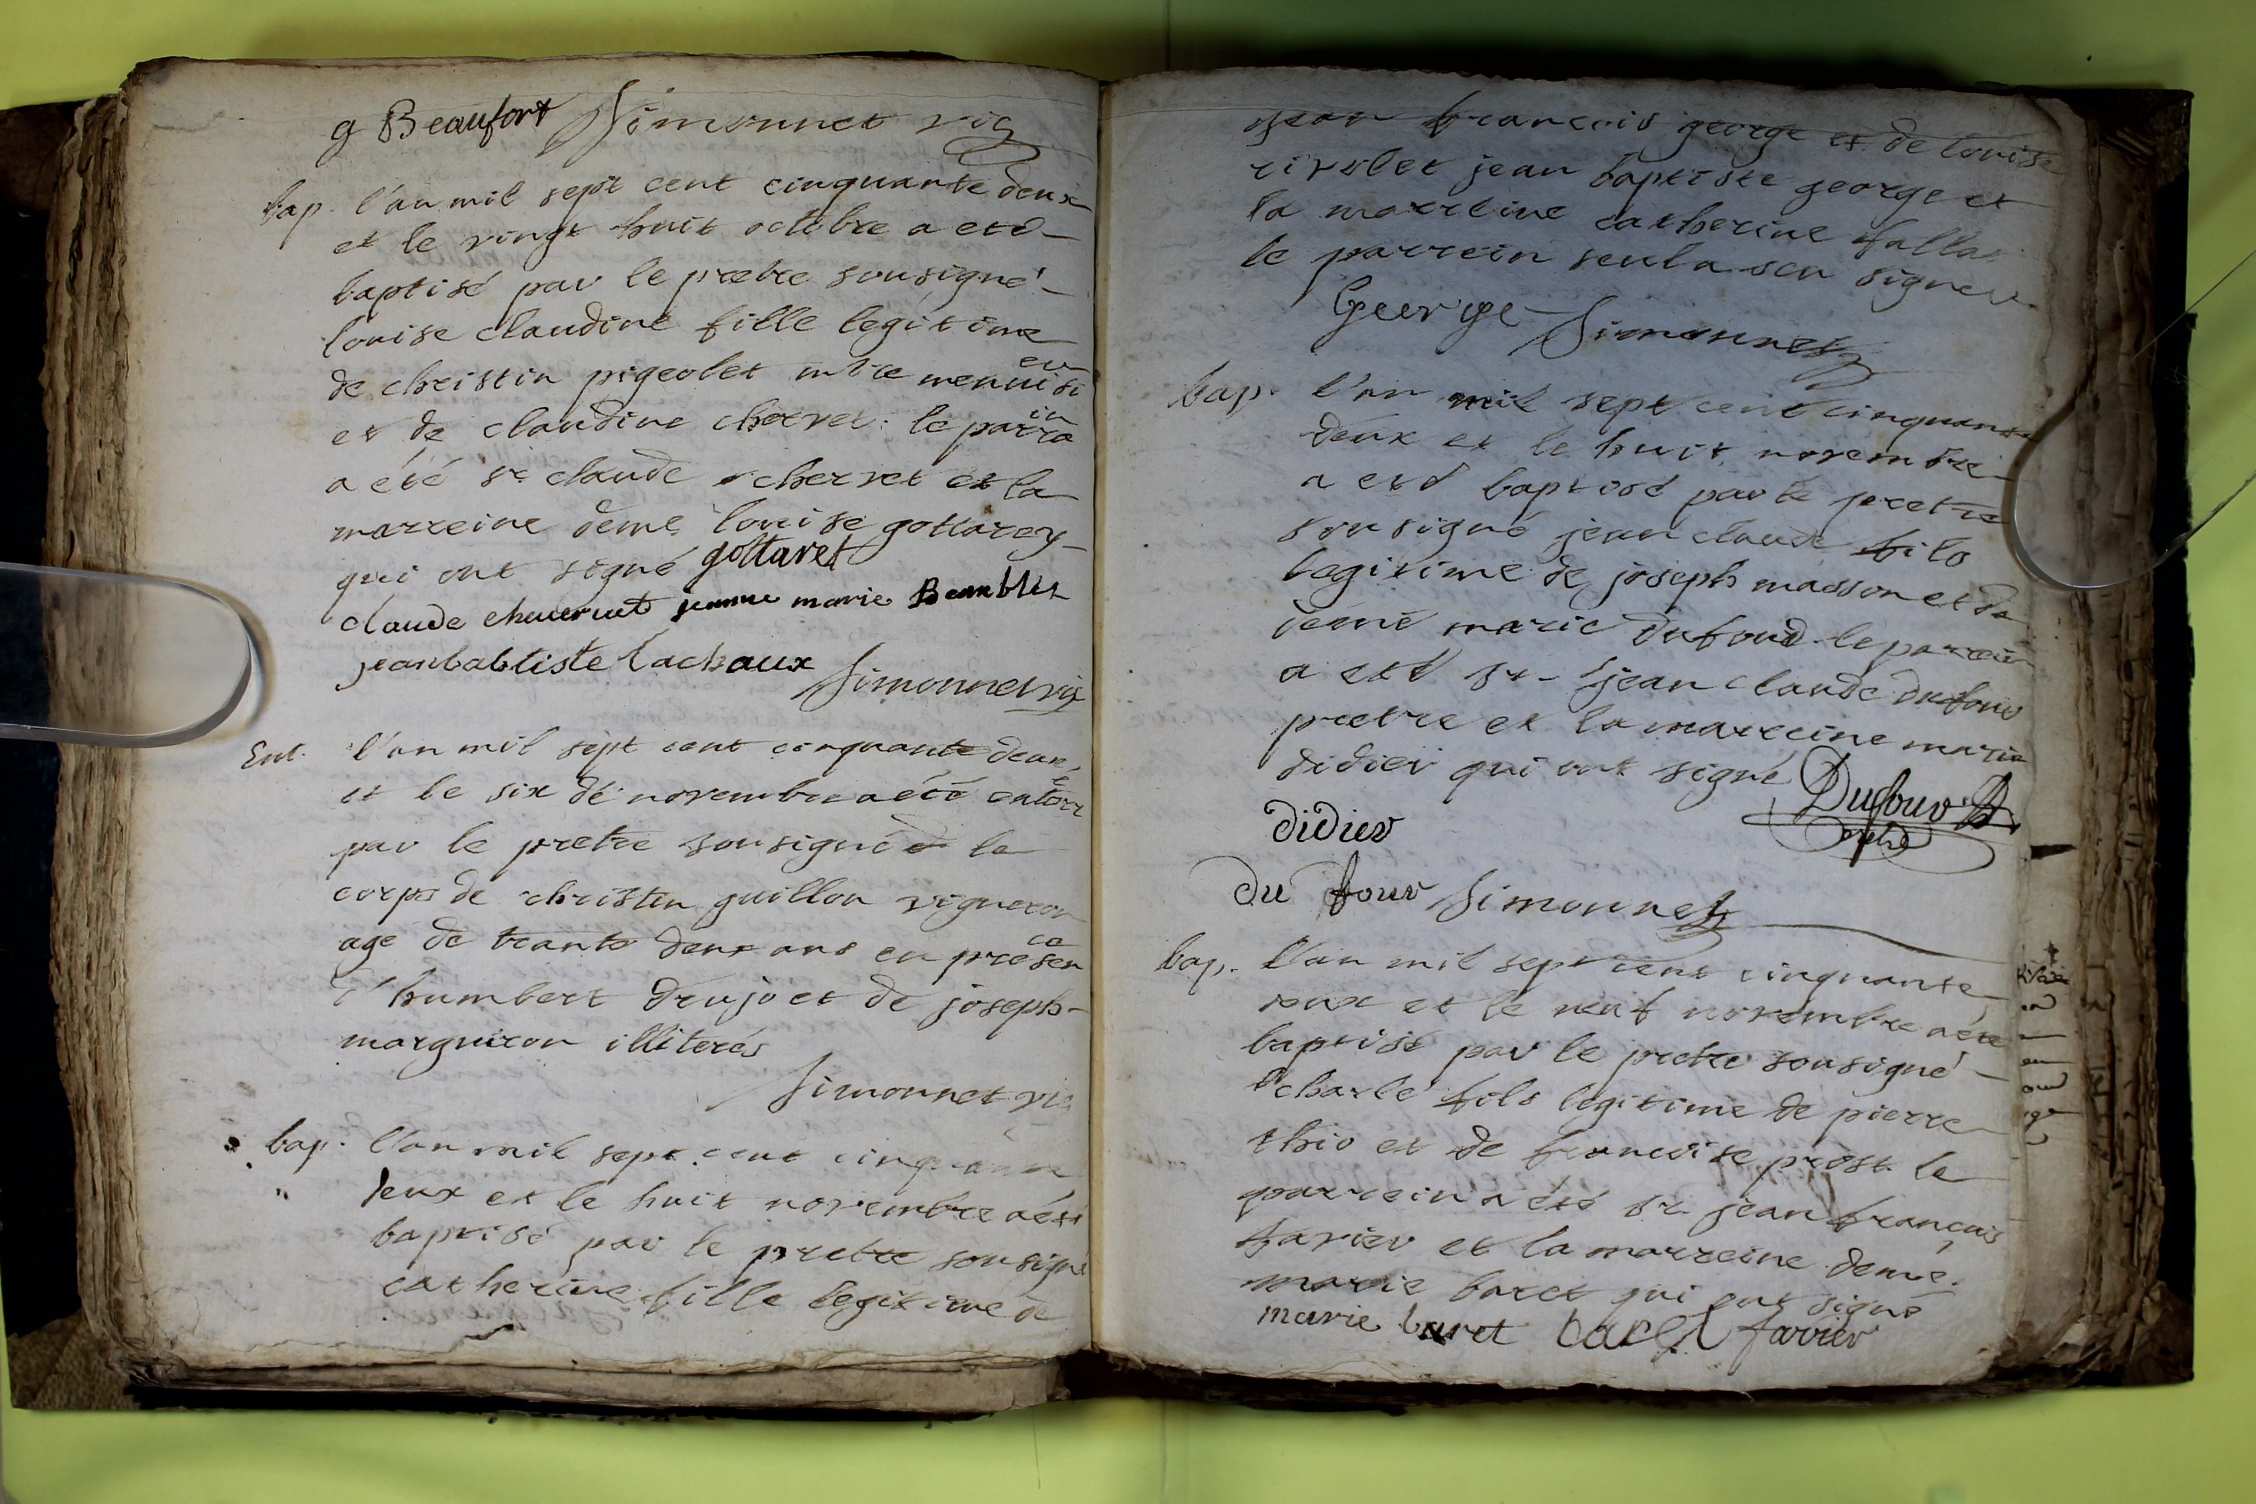 g Beaufort Simonnet vic
bap. l'an mil sept cent cinquante deux
et le vingt huit octobre a eté
baptisé par le pretre sousigné
louise claudine fille legitime
de christin pigeolet mtre menuisi
er
et de claudine chervet le parra
in
a été sr claude chervet et la
marreine deme louise gottarey
qui ont signé gottaret
claude jeanne marie
jeanbabtiste lachaux
Simonnet vic
Ent. l'an mil sept cent cinquante deux
et le six de novembre a été enterr
é
par le pretre sousigné le
corps de christin guillon vigneron
age de trante deux ans en presen
ce
d'humbert drujo et de joseph
marguiron illiterés
Simonnet vic
bap. l'an mil sept cent cinquante
deux et le huit novembre a été
baptisé par le pretre sousigné
catherine fille legitime de
jean francois george et de louise
rivolet jean baptiste george et
la marreine catherine
le parrein seul a seu signer
George Simonnet
bap. l'an mil sept cent cinquante
deux et le huit novembre
a eté baptisé par le pretre
sousigné jean claude fils
legitime de joseph masson et de
marie dufour le parrein
a eté sr jean claude dufour
pretre et la marreine marie
didier qui ont signé Dufour
ptre
didier
du four Simonnet
bap. l'an mil sept cent cinquante
deux et le neuf novembre a été
baptisé par le pretre sousigné
charle fils legitime de pierre
thio et de francoise prost le
parrein a été sr jean francois
farier et la marreine deme
marie baret qui ont signé
marie baret baret farier